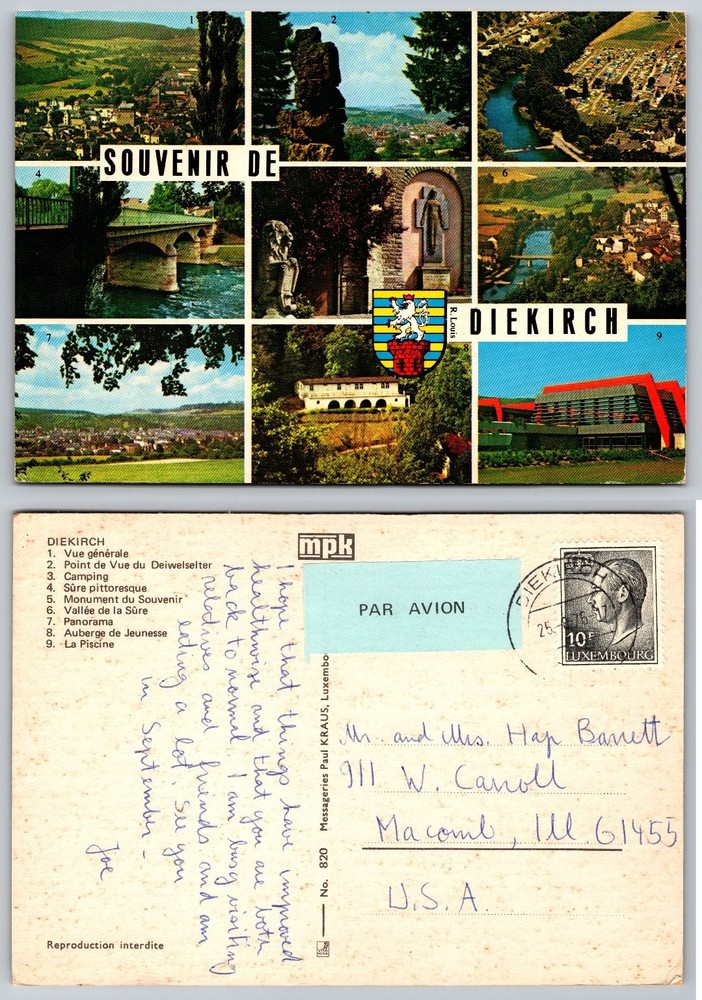 1
2
SOUVENIR DE
4
6
R. Louis
DIEKIRCH
7
8
9
DIEKIRCH
1. Vue générale
2. Point de Vue du Deiwelselter
3. Camping
4. Sûre pittoresque
5. Monument du Souvenir
6. Vallée de la Sûre
7. Panorama
8. Auberge de Jeunesse
9. La Piscine
mpk
PAR AVION
DIEKIRCH
25.
10F
LUXEMBOURG
I hope that things have improved
healthwise and that you are both
back to normal. I am busy visiting
relatives and friends and am
eating a lot. See you
in September -
Joe
No. 820 Messageries Paul KRAUS, Luxembo
Mr. and Mrs. Hap Barrett
911 W. Carroll
Macomb, Ill. 61455
U.S.A.
Reproduction interdite